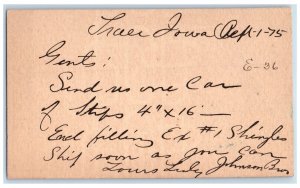 Traer Iowa Sept-1-75
E-26
Gents:
Send us one Car
of Stps 4"x16'—
End filling Ex #1 Shingles
Ship soon as you can
Yours truly Johnson Bros